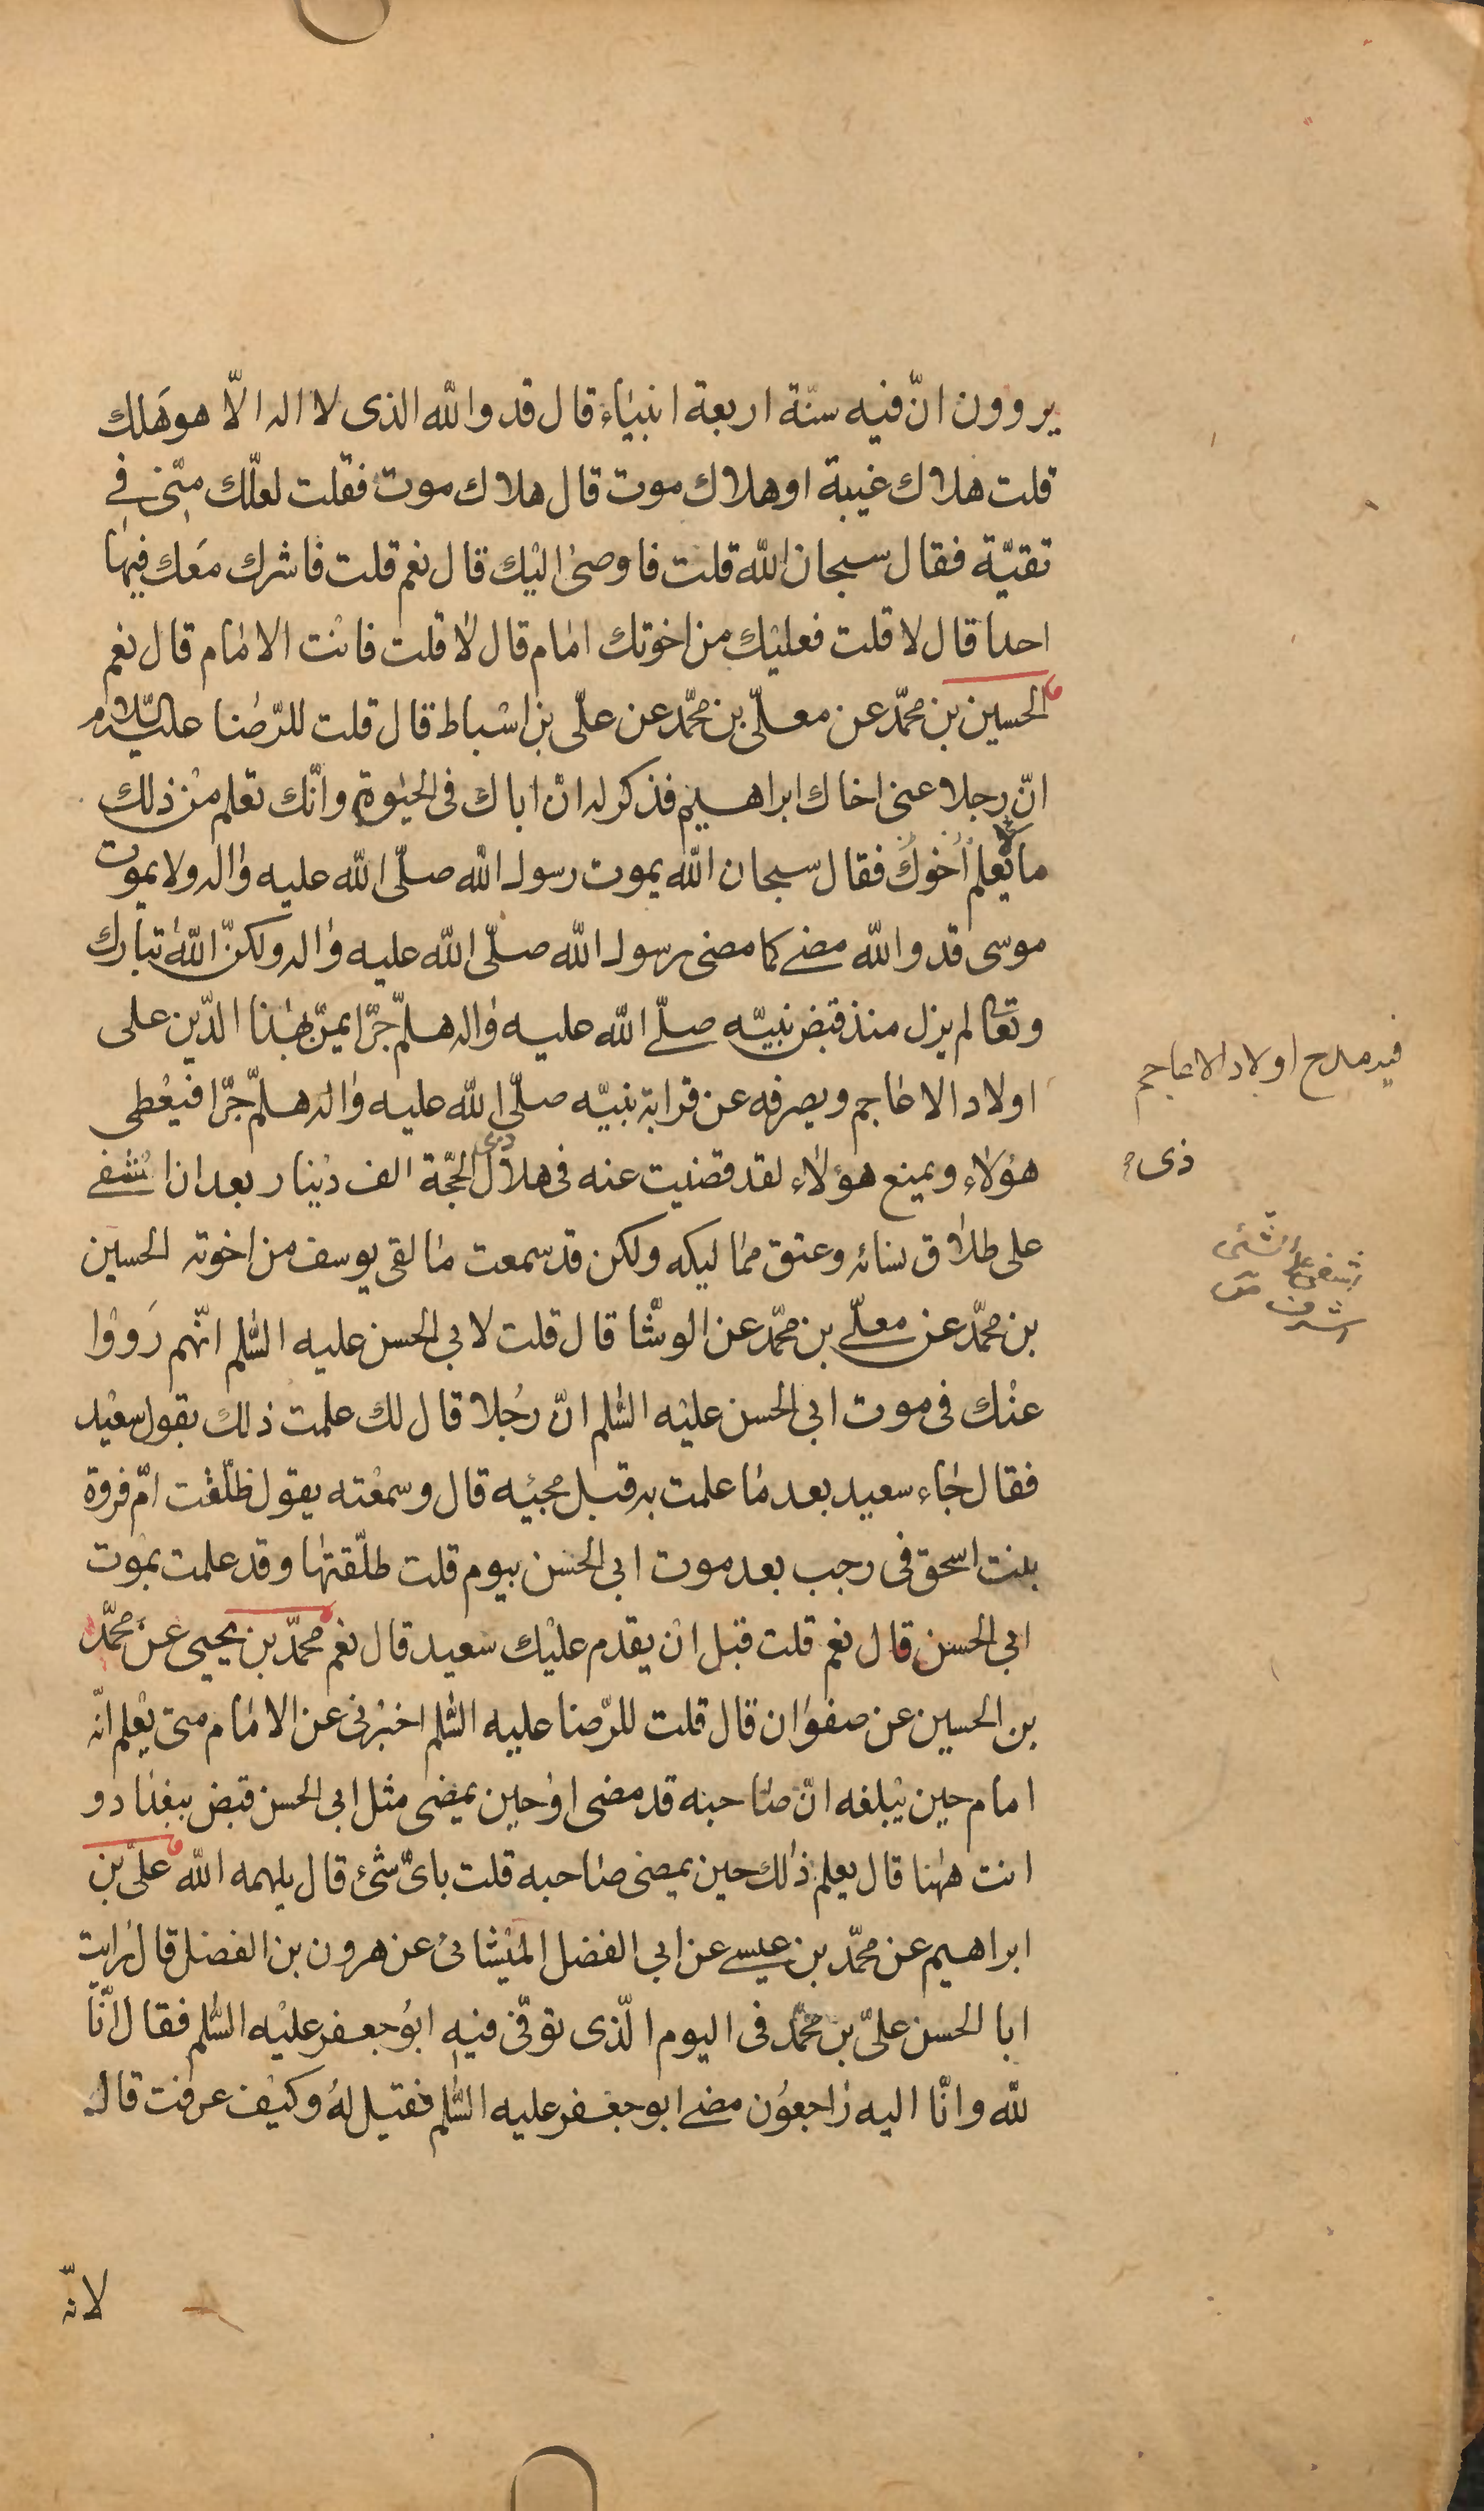 يروون انّ فيه سنّة اربعة انبياء قال قد والله الذى لا اله الّا هو هَلك
قلت هلاك غيبة او هلاك موت قال هلاك موت فقلت لعلّك منّى فى
تقيّة فقال سبحان الله قلت فاوصى اليك قال نعم قلت فاشرك معك فيها
احدا قال لا قلت فعليك من اخوتك امام قال لا قلت فانت الامام قال نعم
الحسين بن محمّد عن معلّى بن محمّد عن علّى بن اسباط قال قلت للرّضا عليه السّلام
انّ رجلا عنى اخاك ابراهيم فذكر له انّ اباك فى الحيوة وانّك تعلم من ذلك
ما لا يعلم اخوك فقال سبحان الله يموت رسول الله صلّى الله عليه واله ولا يموت
موسى قد والله مضى كما مضى رسول الله صلّى الله عليه واله ولكنّ الله تبارك
وتعالى لم يزل منذ قبض نبيّه صلّى الله عليه واله هلمّ جرّا يمنّ بهذا الدّين على
اولاد الاعاجم ويصرفه عن قرابة نبيّه صلّى الله عليه واله هلمّ جرّا فيعطى
هؤلاء ويمنع هؤلاء لقد قضيت عنه فى هلال ذى الحجّة الف دينار بعد ان اشفى
على طلاق نسائه وعتق مماليكه ولكن قد سمعت ما لقى يوسف من اخوته الحسين
بن محمّد عن معلّى بن محمّد عن الوشّا قال قلت لابى الحسن عليه السّلم انّهم رَوَوْا
عنك فى موت ابى الحسن عليه السّلم انّ رجُلا قال لك علمت ذلك بقول سعيد
فقال جاء سعيد بعد ما علمت به قبل مجيئه قال وسمعته يقول طلّقت امّ فروة
بنت اسحق فى رجب بعد موت ابى الحسن بيوم قلت طلّقتها وقد علمت بموت
ابى الحسن قال نعم قلت قبل ان يقدم عليك سعيد قال نعم محمّد بن يحيى عن محمّد
بن الحسين عن صفوان قال قلت للرّضا عليه السّلم اخبرنى عن الامام متى يعلم انّه
امام حين يبلغه انّ صاحبه قد مضى او حين يمضى مثل ابى الحسن قبض ببغداد و
انت ههنا قال يعلم ذلك حين يمضى صاحبه قلت باىّ شئ قال يلهمه الله علىّ بن
ابراهيم عن محمّد بن عيسى عن ابى الفضل الميشائى عن هرون بن الفضل قال رايت
ابا الحسن علىّ بن محمّد فى اليوم الّذى توفّى فيه ابو جعفر عليه السّلم فقال انّا
لله وانّا اليه راجعون مضى ابو جعفر عليه السّلم فقيل له وكيف عرفت قال
لانّه
فيه مدح اولاد الاعاجم
ذى
اشفى على الشئ
اشرف